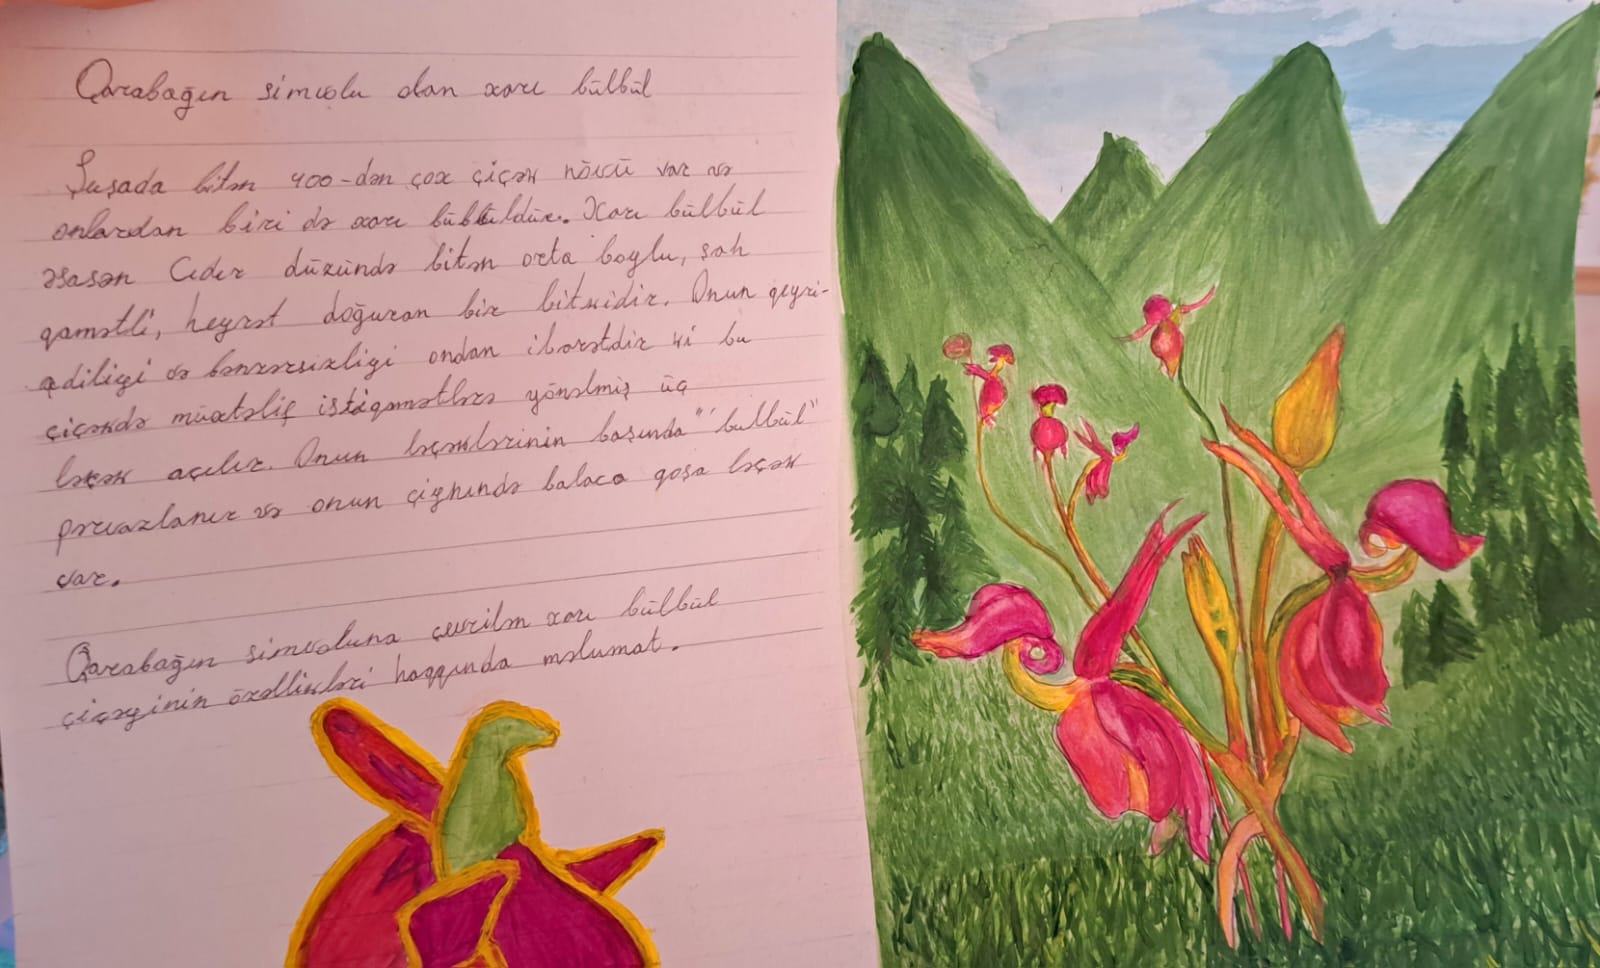 Qarabağın simvolu olan xarı bülbül
Şuşada bitən 400-dən çox çiçək növü var və
onlardan biri də xarı bülbüldür. Xarı bülbül
əsasən Cıdır düzündə bitən orta boylu, şah
qamətli, heyrət doğuran bir bitkidir. Onun qeyri-
adiliyi və bənzərsizliyi ondan ibarətdir ki bu
çiçəkdə müxtəlif istiqamətlərə yönəlmiş üç
ləçək açılır. Onun ləçəklərinin başında "bulbül"
pərvazlanır və onun çiynində balaca qoşa ləçək
var.
Qarabağın simvoluna çevrilən xarı bülbül
çiçəyinin özəllikləri haqqında məlumat.